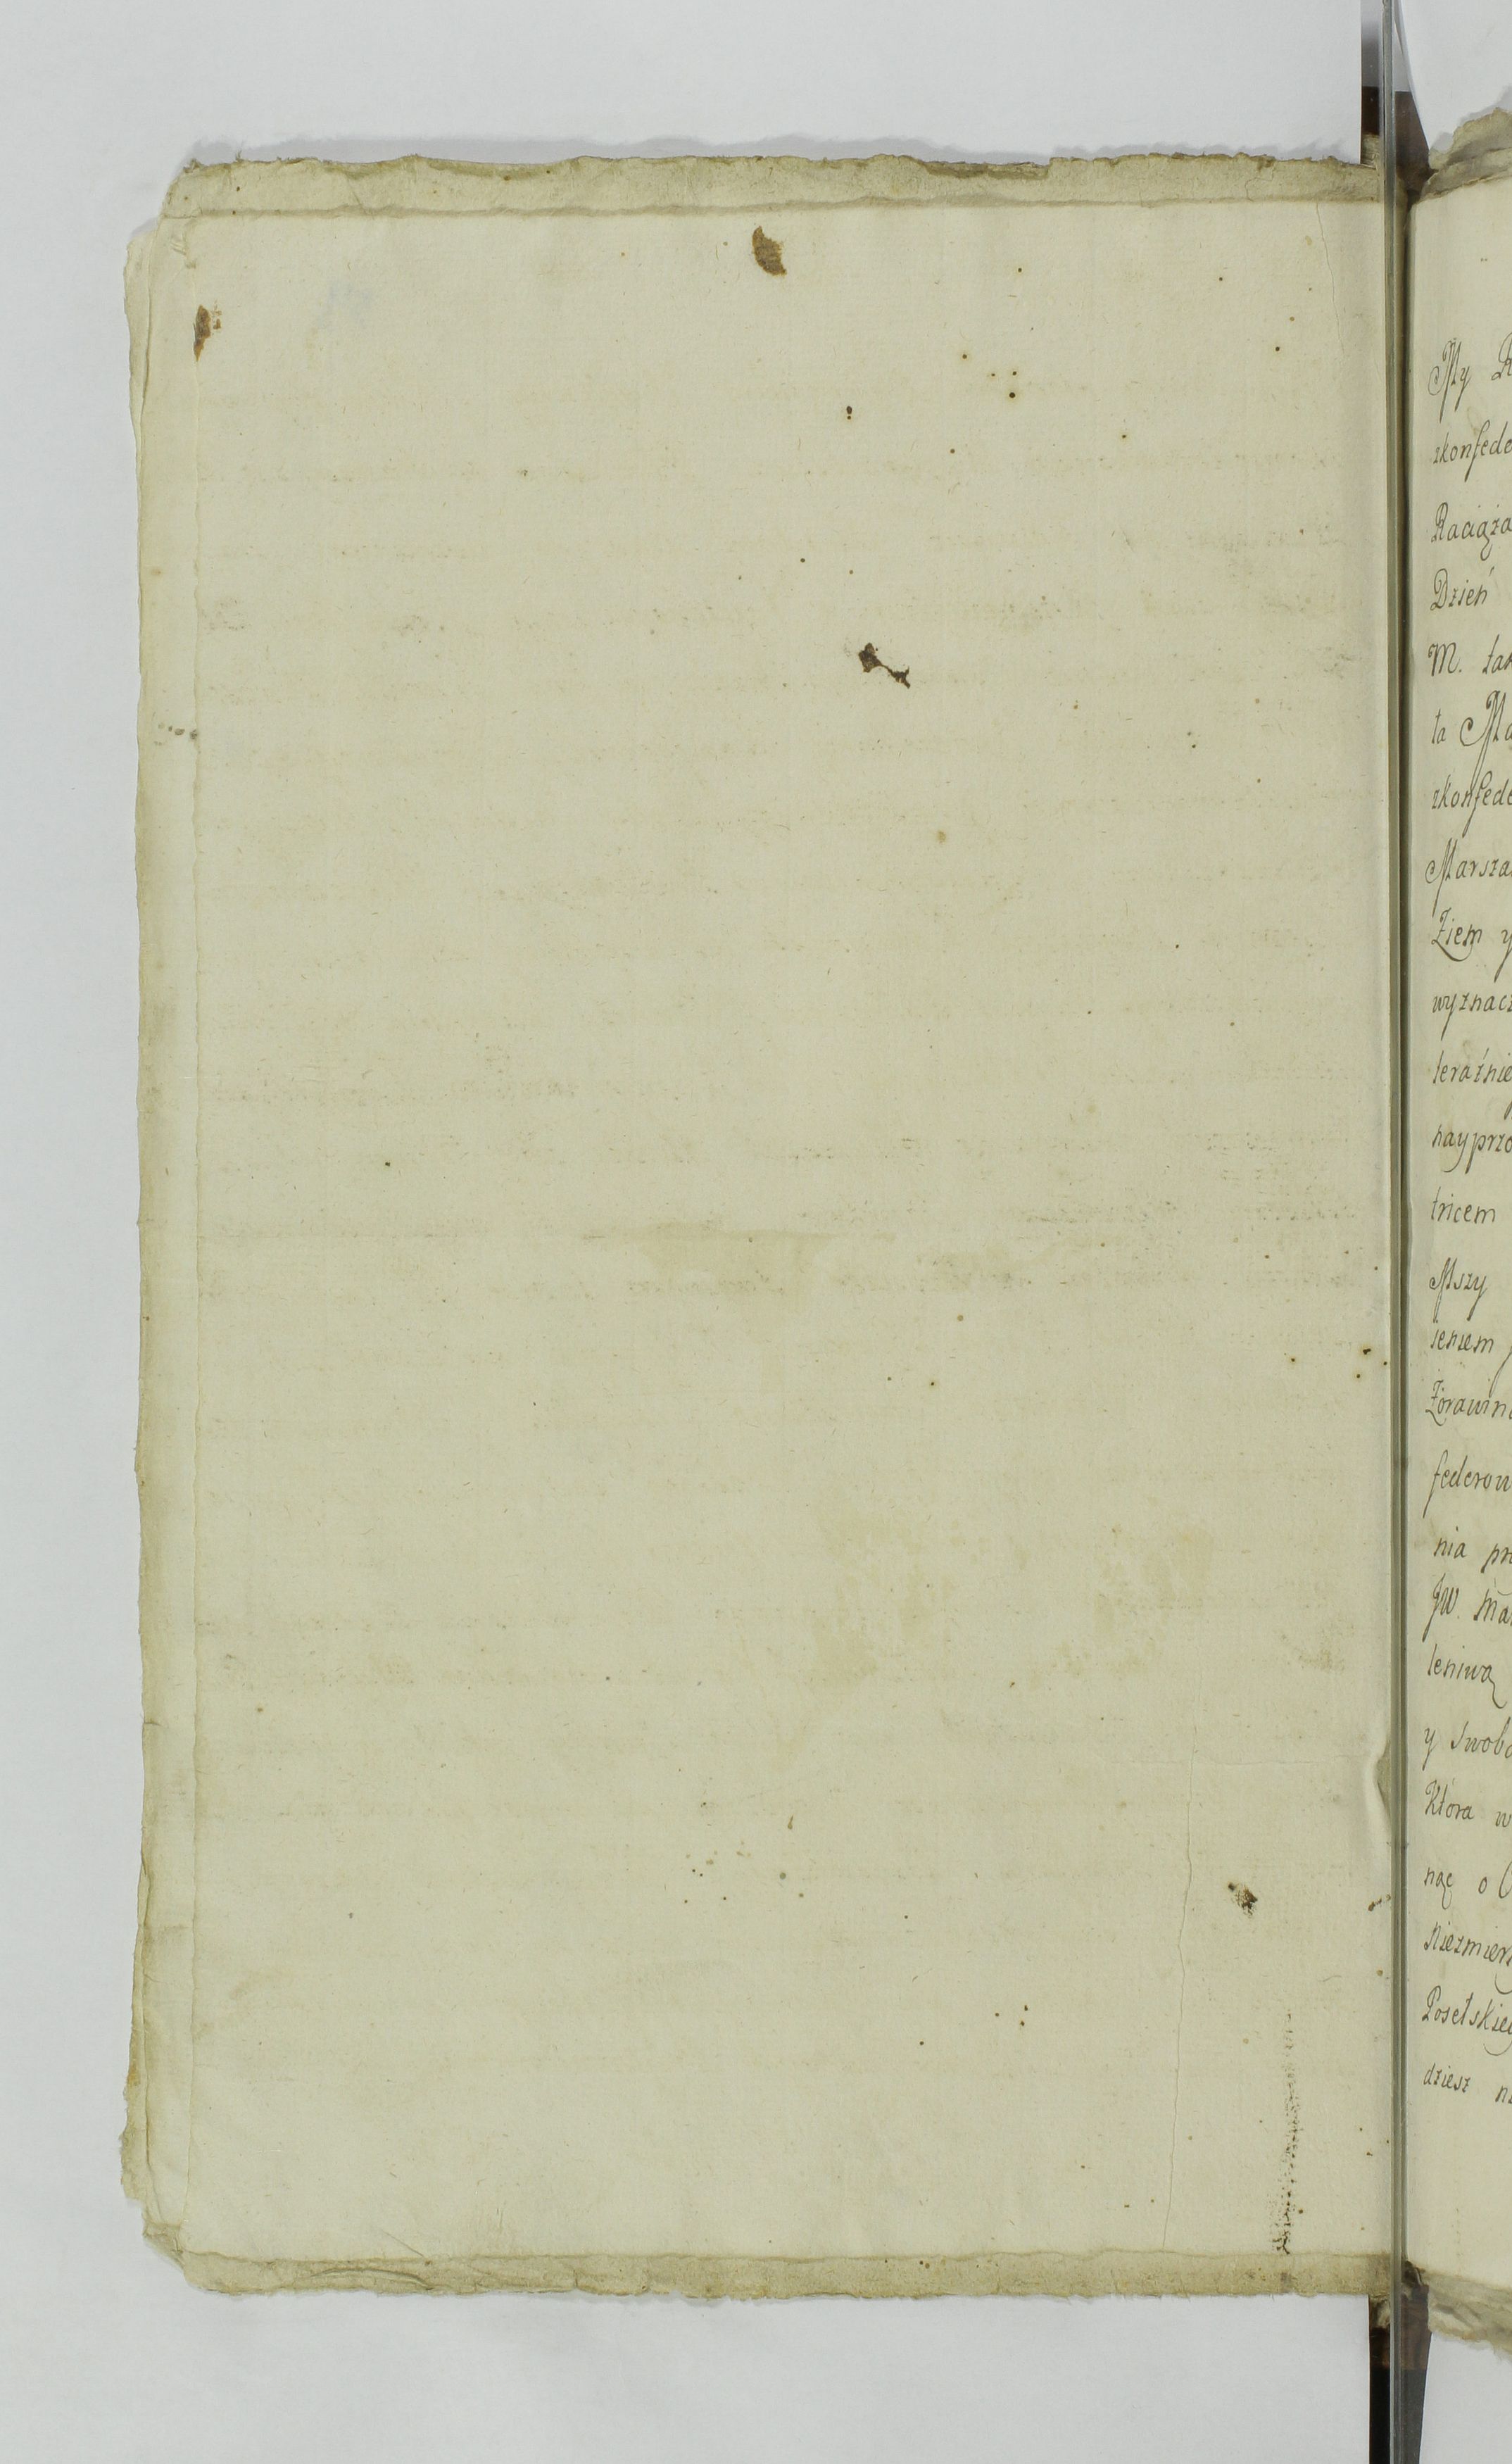 My R
skonfede
Raciąża
Dzień
M. tak
ta Ma
skonfede
Marsza
Ziem y
wyznacz
teraźnie
nayprzo
tricem
Mszy
ieniem
Żorawin
federow
nia prz
JW. Mar
leniwą
y swobo
Ktora w
nąc o O
Niezmier
Poselskieg
dziesz